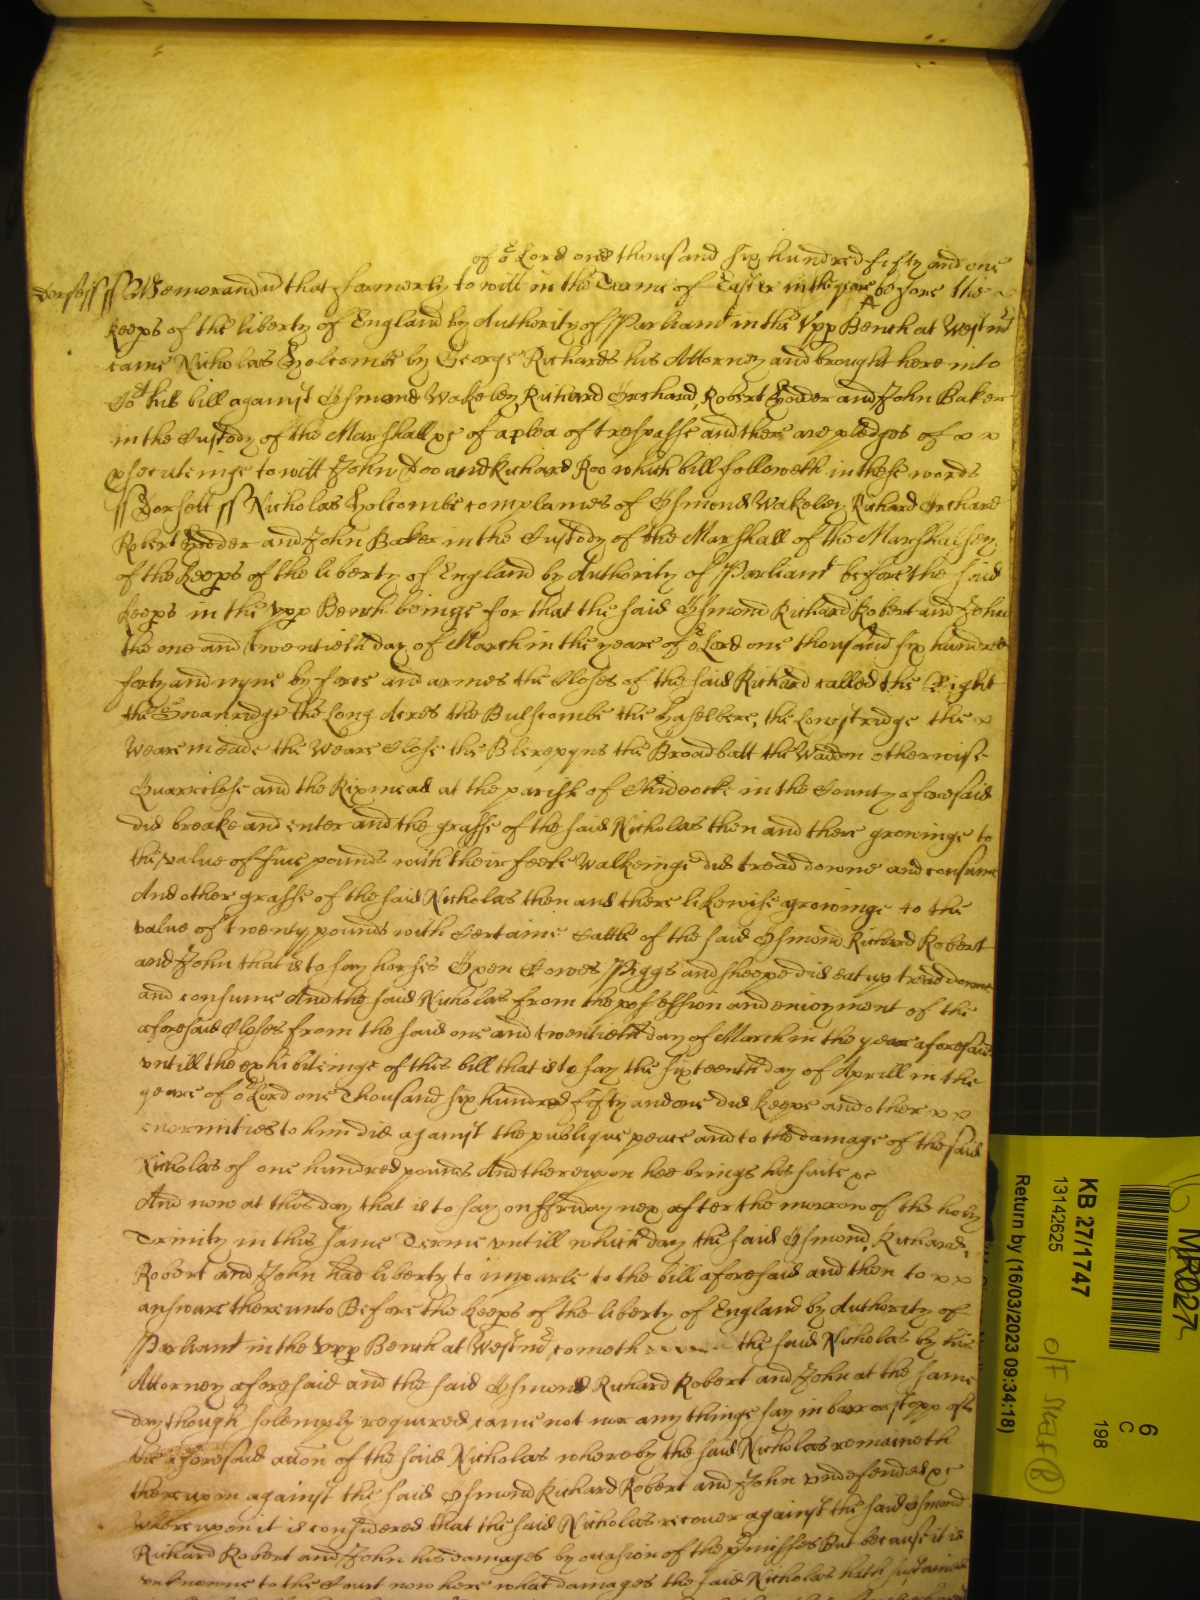 of or Lord one thousand six hundred fifty and one
Dorsett ss Memorandud that formerly to witt in the Terme of Easter in the yeare before the
keeps of the liberty of England by Authority of Parliamt in the Upp Bench at Westmr
came Nicholas Holcombe by George Richards his Attorney and brought here into
Cort his bill against Osmond Wakeley, Richard Orchard, Robert Hodder and John Baker
in the Custody of the Marshall &c of a plea of trespasse and there are pledges of x x
psecuteinge to witt John Doo and Richard Roo which bill followeth in these words
ss Dorsett ss Nicholas Holcombe complaines of Osmond Wakeley Richard Orchard
Robert Hodder and John Baker in the Custody of the Marshall of the Marshalsey
of the keeps of the liberty of England by Authority of Parliamt before the said
keeps in the Upp Bench beinge for that the said Osmond Richard Robert and John
the one and twentieth day of March in the yeare of or Lord one thousand six hundred
forty and nyne by force and armes the Closes of the said Richard called the Eight
the Swanridge the Long Acres the Bulscombe the Haselbere, the Longstridge the x
Weare meade the Weare Close the the Broadbatt the Waddon otherwise
Quarrclose and the Rixmead at the parish of Chideocke in the County aforesaid
did breake and enter and the grasse of the said Nicholas then and there growinge to
the value of five pounds with their feete walkeinge did tread downe and consume
And other grasse of the said Nicholas then and there likewise growinge to the
value of twenty pounds with Certaine Cattle of the said Osmond Richard Robert
and John that is to say horses Oxen Cowes Piggs and sheepe did eat up tread downe
and consume And the said Nicholas from the possession and enioyment of the
aforesaid Closes from the said one and twentieth day of March in the yeare aforesaid
untill the exhibiteinge of this bill that is to say the sixteenth day of Aprill in the
yeare of or Lord one Thousand six hundred fifty and one did keepe and other x x
enormities to him did against the publique peace and to the damage of the said
Nicholas of one hundred pounds And thereupon hee brings his suite &c
And now at this day that is to say on ffriday nex after the morrow of the holy
Trinity in this same Terme untill which day the said Osmond, Richard,
Robert and John had liberty to imparle to the bill aforesaid and then to x x
answare thereunto Before the keeps of the liberty of England by Authority of
Parliamt in the Upp Bench at Westmr cometh the said Nicholas by his
Attorney aforesaid and the said Osmond Richard Robert and John at the same
day though solemply required came not nor any thinge say in barr or stopp of
the aforesaid accon of the said Nicholas whereby the said Nicholas remaineth
thereupon against the said Osmond Richard Robert and John undefended &c
Whereupon it is considered that the said Nicholas recover against the said Osmond
Richard Robert and John his damages by occasion of the pmisses But because it is
unknowne to the Court now here what damages the said Nicholas hath sustained
KB 27/1747
13142625
Return by (16/03/2023 09:34:18)
6
C
198